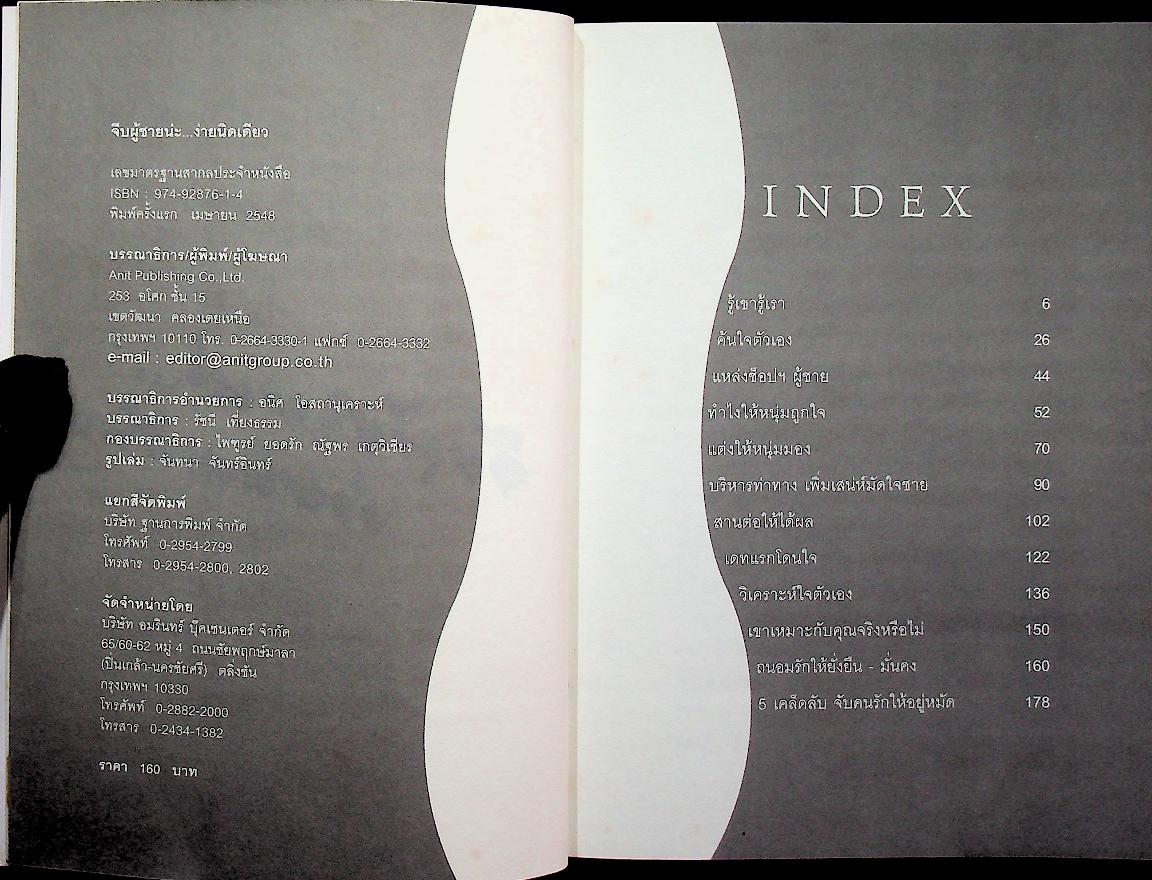 จีบผู้ชายน่ะ...ง่ายนิดเดียว
เลขมาตรฐานสากลประจำหนังสือ
ISBN : 974-92876-1-4
พิมพ์ครั้งแรก เมษายน 2548
บรรณาธิการ/ผู้พิมพ์/ผู้โฆษณา
Anit Publishing Co.,Ltd.
253 อโศก ชั้น 15
เขตวัฒนา คลองเตยเหนือ
กรุงเทพฯ 10110 โทร. 0-2664-3330-1 แฟกซ์ 0-2664-3332
e-mail : editor@anitgroup.co.th
บรรณาธิการอำนวยการ : อนิศ โอสถานุเคราะห์
บรรณาธิการ : รัชนี เที่ยงธรรม
กองบรรณาธิการ : ไพฑูรย์ ยอดรัก ณัฐพร เกตุวิเชียร
รูปเล่ม : จันทนา จันทร์อินทร์
แยกสีจัดพิมพ์
บริษัท ฐานการพิมพ์ จำกัด
โทรศัพท์ 0-2954-2799
โทรสาร 0-2954-2800, 2802
จัดจำหน่ายโดย
บริษัท อมรินทร์ บุ๊คเซนเตอร์ จำกัด
65/60-62 หมู่ 4 ถนนชัยพฤกษ์มาลา
(ปิ่นเกล้า-นครชัยศรี) ตลิ่งชัน
กรุงเทพฯ 10330
โทรศัพท์ 0-2882-2000
โทรสาร 0-2434-1382
ราคา 160 บาท
INDEX
รู้เขารู้เรา 6
ค้นใจตัวเอง 26
แหล่งช็อปฯ ผู้ชาย 44
ทำไงให้หนุ่มถูกใจ 52
แต่งให้หนุ่มมอง 70
บริหารท่าทาง เพิ่มเสน่ห์มัดใจชาย 90
สานต่อให้ได้ผล 102
เดทแรกโดนใจ 122
วิเคราะห์ใจตัวเอง 136
เขาเหมาะกับคุณจริงหรือไม่ 150
ถนอมรักให้ยั่งยืน - มั่นคง 160
5 เคล็ดลับ จับคนรักให้อยู่หมัด 178